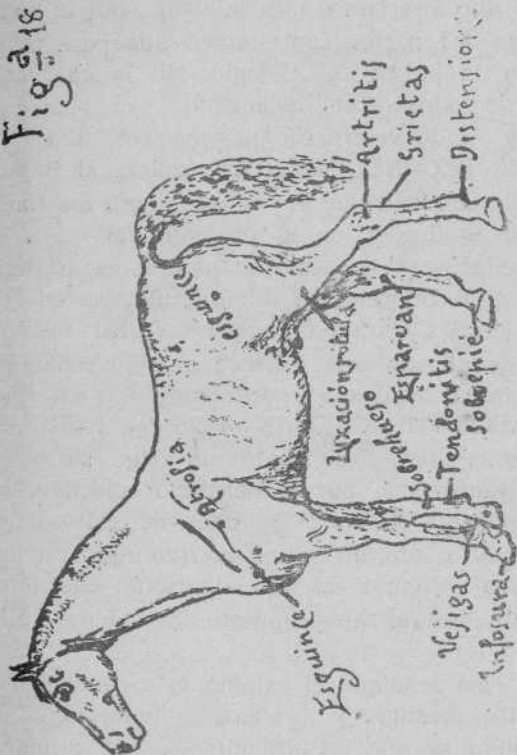 Figª 18
Atrofia
esguince
Esguince
Luxación rotula
Sobrehueso
Esparavan
Tendonitis
Sobrepie
Vejigas
Infosura
Artritis
Grietas
Distension